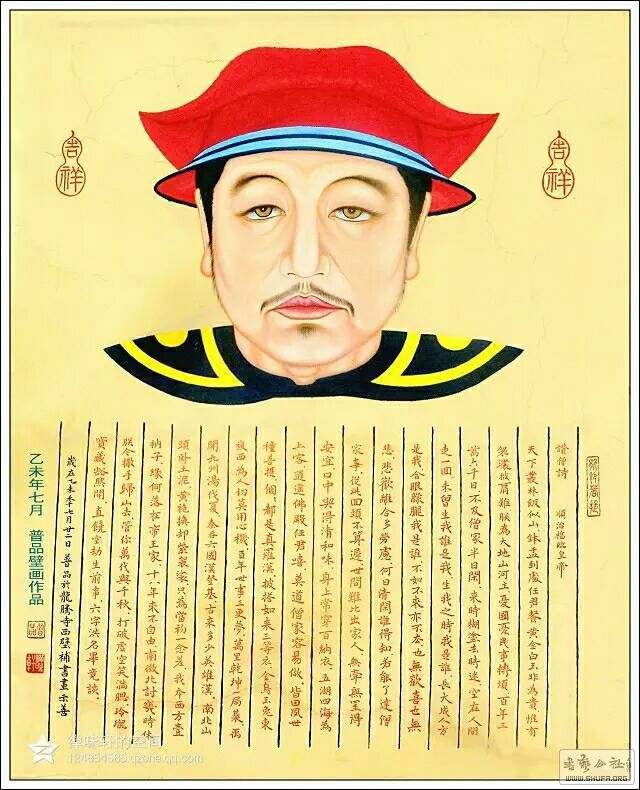 吉祥
吉祥
讚僧詩　順治福臨皇帝
天下叢林飯似山鉢盂到處任君餐黃金白玉非為貴惟有
袈裟披肩難朕為大地山河主憂國憂民事轉煩百年三
萬六千日不及僧家半日閒來時糊塗去時迷空在人間
走一回未曾生我誰是我生我之時我是誰長大成人方
是我合眼朦朧我是誰不如不來亦不去也無歡喜也無
悲悲歡離合多勞慮何日清閒誰得知若能了達僧
家事從此回頭不算遲世間難比出家人無牽無罣得
安宜口中喫得清和味身上常穿百納衣五湖四海為
上客逍遙佛殿任君嘻莫道僧家容易做皆因夙世
種菩提個個都是真羅漢披搭如來三等衣金烏玉兔東
復西為人切莫用心機百年世事三更夢萬里乾坤一局碁禹
開九州湯伐夏秦吞六國漢登基古來多少英雄漢南北山
頭卧土泥黃袍換却紫袈裟只為當初一念差我本西方一
衲子緣何落在帝王家十八年來不自由南征北討幾時休
朕今撒手歸山去管你萬代與千秋打破虛空笑滿腮玲瓏
寶藏豁然開直饒空劫生前事六字洪名畢竟該
歲在乙未年七月廿二日普品於龍勝寺西壁補書畫示善
乙未年七月 普品壁画作品
的空间
qzone.qq.com
书艺公社
WWW.SHUFA.ORG